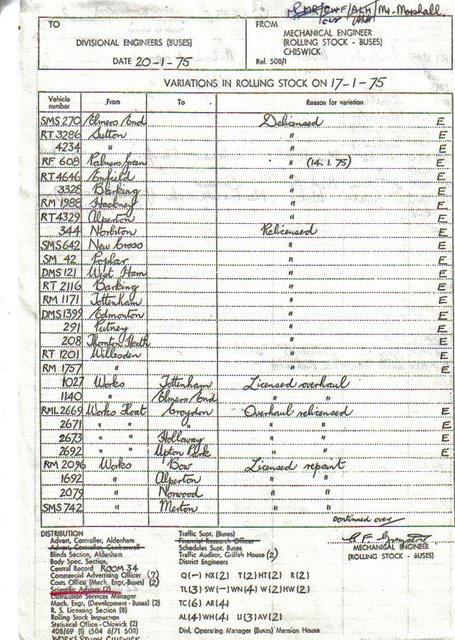 Mr. Marshall
TO
DIVISIONAL ENGINEERS (BUSES)
DATE 20-1-75
FROM
MECHANICAL ENGINEER
(ROLLING STOCK - BUSES)
CHISWICK
Ref. 508/1
VARIATIONS IN ROLLING STOCK ON 17-1-75
Vehicle number From To Reason for variation
SMS 270 Elmers End Delicensed E
RT 3286 Sutton " E
4234 " " E
RF 608 Palmers Green " (14.1.75) E
RT 4646 Enfield " E
3328 Barking " E
RM 1988 Hackney " E
RT 4329 Alperton " E
344 Norbiton Relicensed E
SMS 642 New Cross " E
SM 42 Poplar " E
DMS 121 West Ham " E
RT 2116 Barking " E
RM 1171 Tottenham " E
DMS 1399 Edmonton " E
291 Putney " E
208 Thornton Heath " E
RT 1201 Willesden " E
RM 1757 " " E
1027 Works Tottenham Licensed overhaul
1140 " Elmers End " "
RML 2669 Works Float Croydon Overhaul relicensed E
2671 " " " " E
2673 " " Holloway " E
2692 " " Upton Park " E
RM 2096 Works Bow Licensed repaint
1692 " Alperton "
2079 " Norwood "
SMS 742 " Merton "
continued over
MECHANICAL ENGINEER
(ROLLING STOCK - BUSES)
DISTRIBUTION
Advert. Controller, Aldenham
Advert. Controller, Camberwell
Blinds Section, Aldenham
Body Spec. Section,
Central Record ROOM 34
Commercial Advertising Officer (7)
Costs Office (Mech. Engr. Buses) (2)
Scientific Adviser (2)
Distribution Services Manager
Mech. Engr. (Development - Buses) (2)
R. S. Licensing Section (8)
Rolling Stock Inspection
Statistical Office - Chiswick (2)
408/69 (1) 504 6/71 508)
Traffic Supt. (Buses)
Financial Research Officer
Schedules Supt. Buses
Traffic Auditor, Griffith House (2)
District Engineers
Q (-) NX (2) T (2) HT (2) R (2)
TL (3) SW (-) WN (4) W (2) HW (2)
TC (6) AR (4)
AL (4) WH (4) U (3) AV (2)
Divl. Operating Manager (Buses) Mansion House